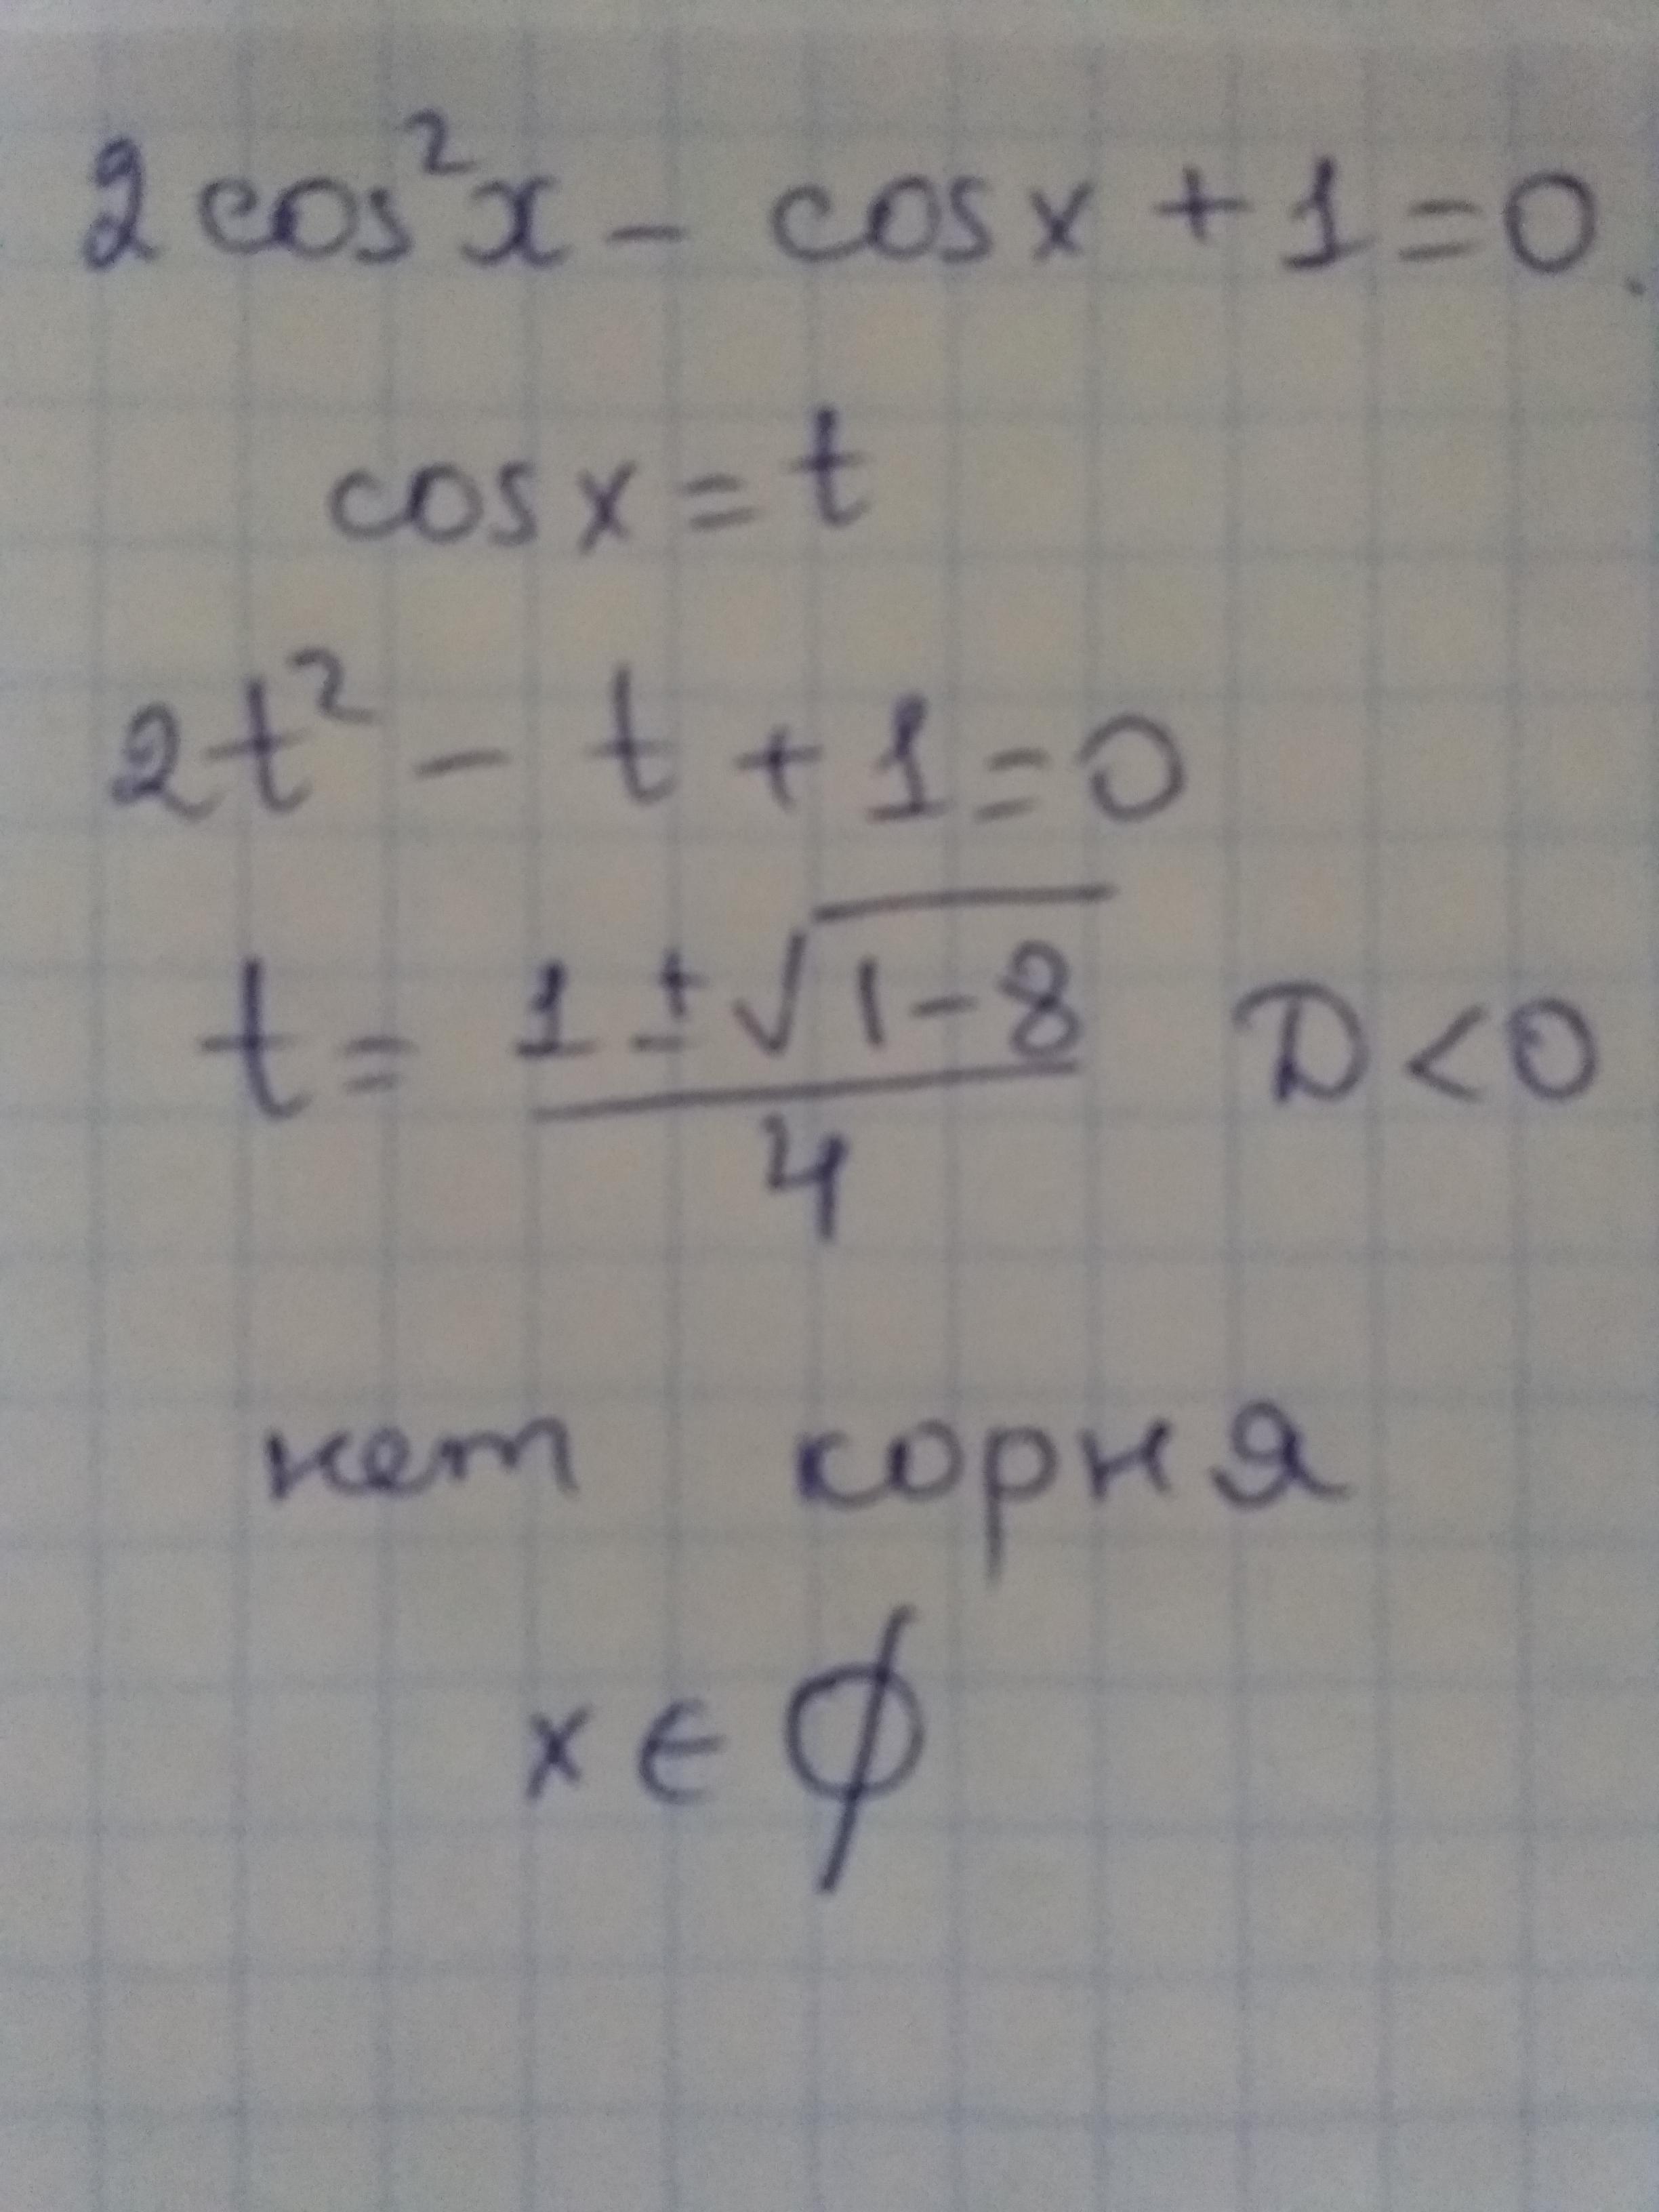 2 cos²x - cos x + 1 = 0.
cos x = t
2t² - t + 1 = 0
t = (1 ± √(1-8))/4 D < 0
нет корня
x ∈ ∅